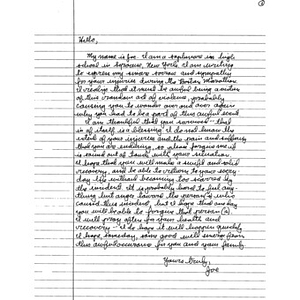 Hello,
My name is Joe. I am a sophomore in high
school in Syracuse, New York. I am writing
to express my sincere sorrow and sympathy
for your injuries during the Boston Marathon.
of this random act of violence, probably
causing you to wonder over and over again
why you had to be a part of this awful event.
I am thankful that you survived - that
in of itself is a blessing. I do not know the
extent of your injuries and the pain and
that you are enduring, so please forgive me if
out of touch with your situation.
I hope that you will make a swift and solid
recovery, and be able to return to your every
day life without becoming too scarred by
the incident. It is probably hard to feel any-
thing but anger towards the person(s) who
caused this incident, but I hope that one day
you will be able to forgive that person(s).
I will pray often for your health and
recovery - I do hope it will happen quickly.
I hope someday, some good will come from
this awful for you and your family.
Yours truly,
Joe